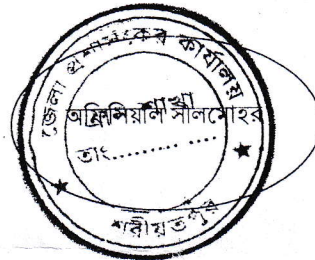 জেলা প্রশাসকের কার্যালয়
শাখা
অফিসিয়াল সীলমোহর
তাং.............
শরীয়তপুর